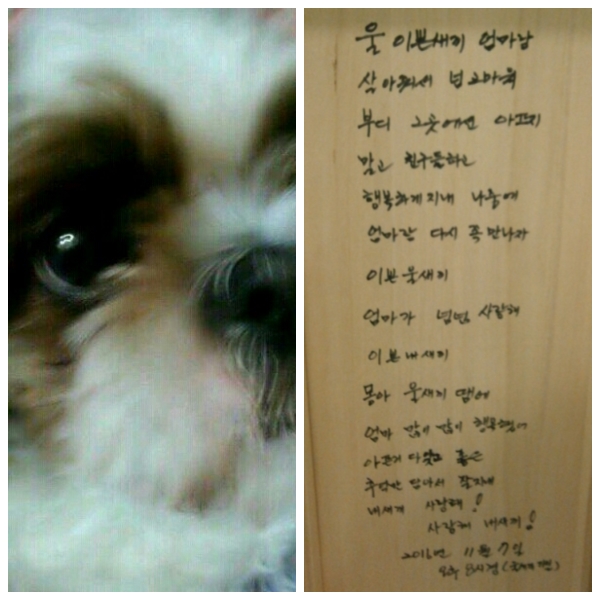 울 이쁜새끼 엄마랑
살아줘서 넘 고마워
부디 그곳에선 아프지
말고 친구들하고
행복하게 지내 나중에
엄마랑 다시 꼭 만나자
이쁜 울새끼
엄마가 넘넘 사랑해
이쁜 내새끼
몽아 울새끼 땜에
엄마 많이 많이 행복했어
아픈거 다 잊고 좋은
추억만 담아서 잘지내
내새끼 사랑해!
사랑해 내새끼!
2016년 11월 7일
오후 8시경